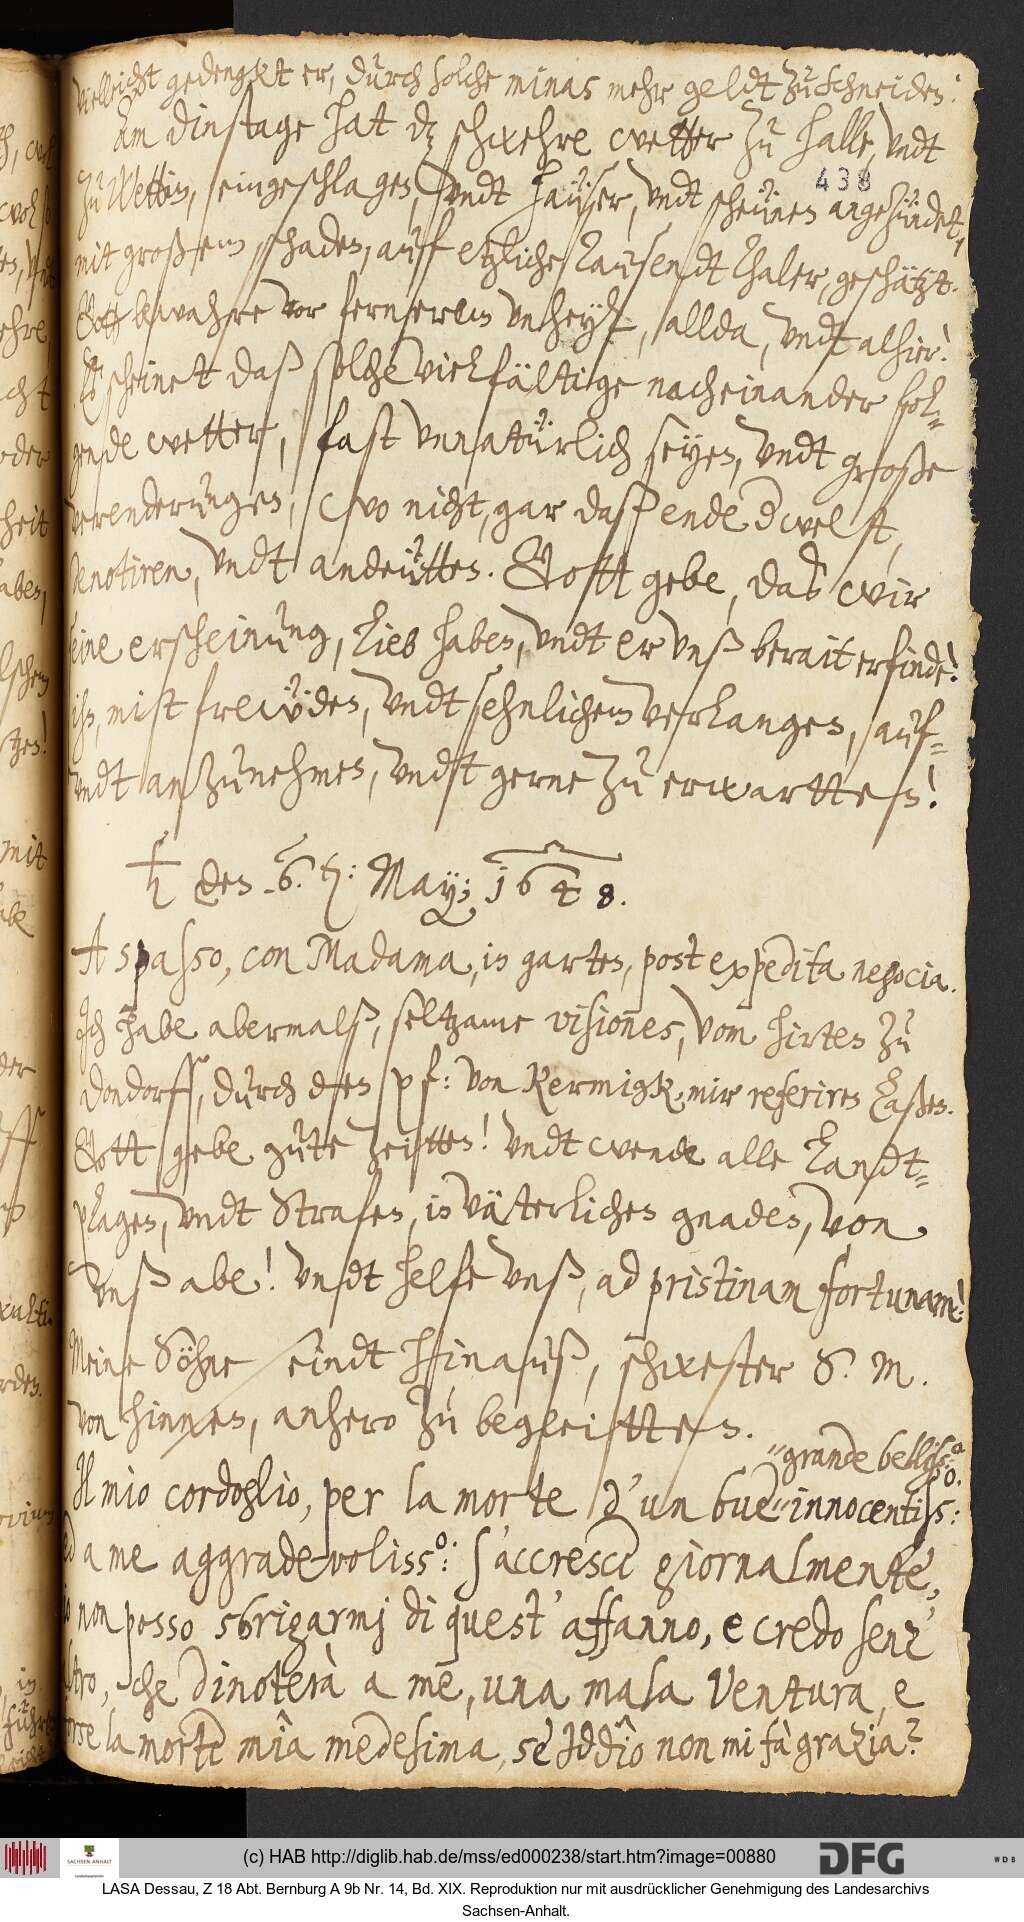 Vielleicht gedengkt er, durch solche minas mehr geldt zu schneiden.
Am dinstage hat dz schwehre wetter zu Halle, vndt
438
zu Wettin, eingeschlagen, vndt Haüser, vndt scheünen angezündet,
mit großem schaden, auf etzliche Tausendt Thaler, geschätzt.
Gott bewahre vor fernerem vnheyl, allda, vndt alhier!
Es scheinet daß solche vielfältige nacheinander fol-
gende wetter, fast vnnatürlich seyen, vndt große
verenderungen, wo nicht, gar daß ende d welt,
denotiren, vndt andeütten. Gott gebe, das wir
seine erscheinung, lieb haben, vndt er vnß berait erfinde!
ihn, mitt frewden, vndt sehnlichem verlangen, auf-
vndt anzunehmen, vndt gerne zu erwartten!
♄ den 6. ten: May; 1648.
A spasso, con Madama, in garten, post expedita negocia.
Ich habe abermalß, seltzame visiones, vom Hirten zu
Dondorff, durch den pf: von Kermigk, mir referiren laßen.
Gott gebe gute zeitten! vndt wende alle Landt-
plagen, vndt Strafen, in väterlichen gnaden, von
vnß abe! vndt helfe vnß, ad pristinam fortunam!
Meine Söhne seindt hinauß, schwester S. M.
von hinnen, anhero zu begleitten.
"grande belliss:o
Il mio cordoglio, per la morte d'un bue" innocentiss:o
ed a me aggradevoliss:o s'accresce giornalmente,
io non posso sbrigarmj di quest' affanno, e credo senz'
altro, che dinoterà a me, una mala Ventura, e
forse la morte mia medesima, se Iddio non mi fà grazia?
(c) HAB http://diglib.hab.de/mss/ed000238/start.htm?image=00880
SACHSEN-ANHALT
DFG
WDB
LASA Dessau, Z 18 Abt. Bernburg A 9b Nr. 14, Bd. XIX. Reproduktion nur mit ausdrücklicher Genehmigung des Landesarchivs
Sachsen-Anhalt.